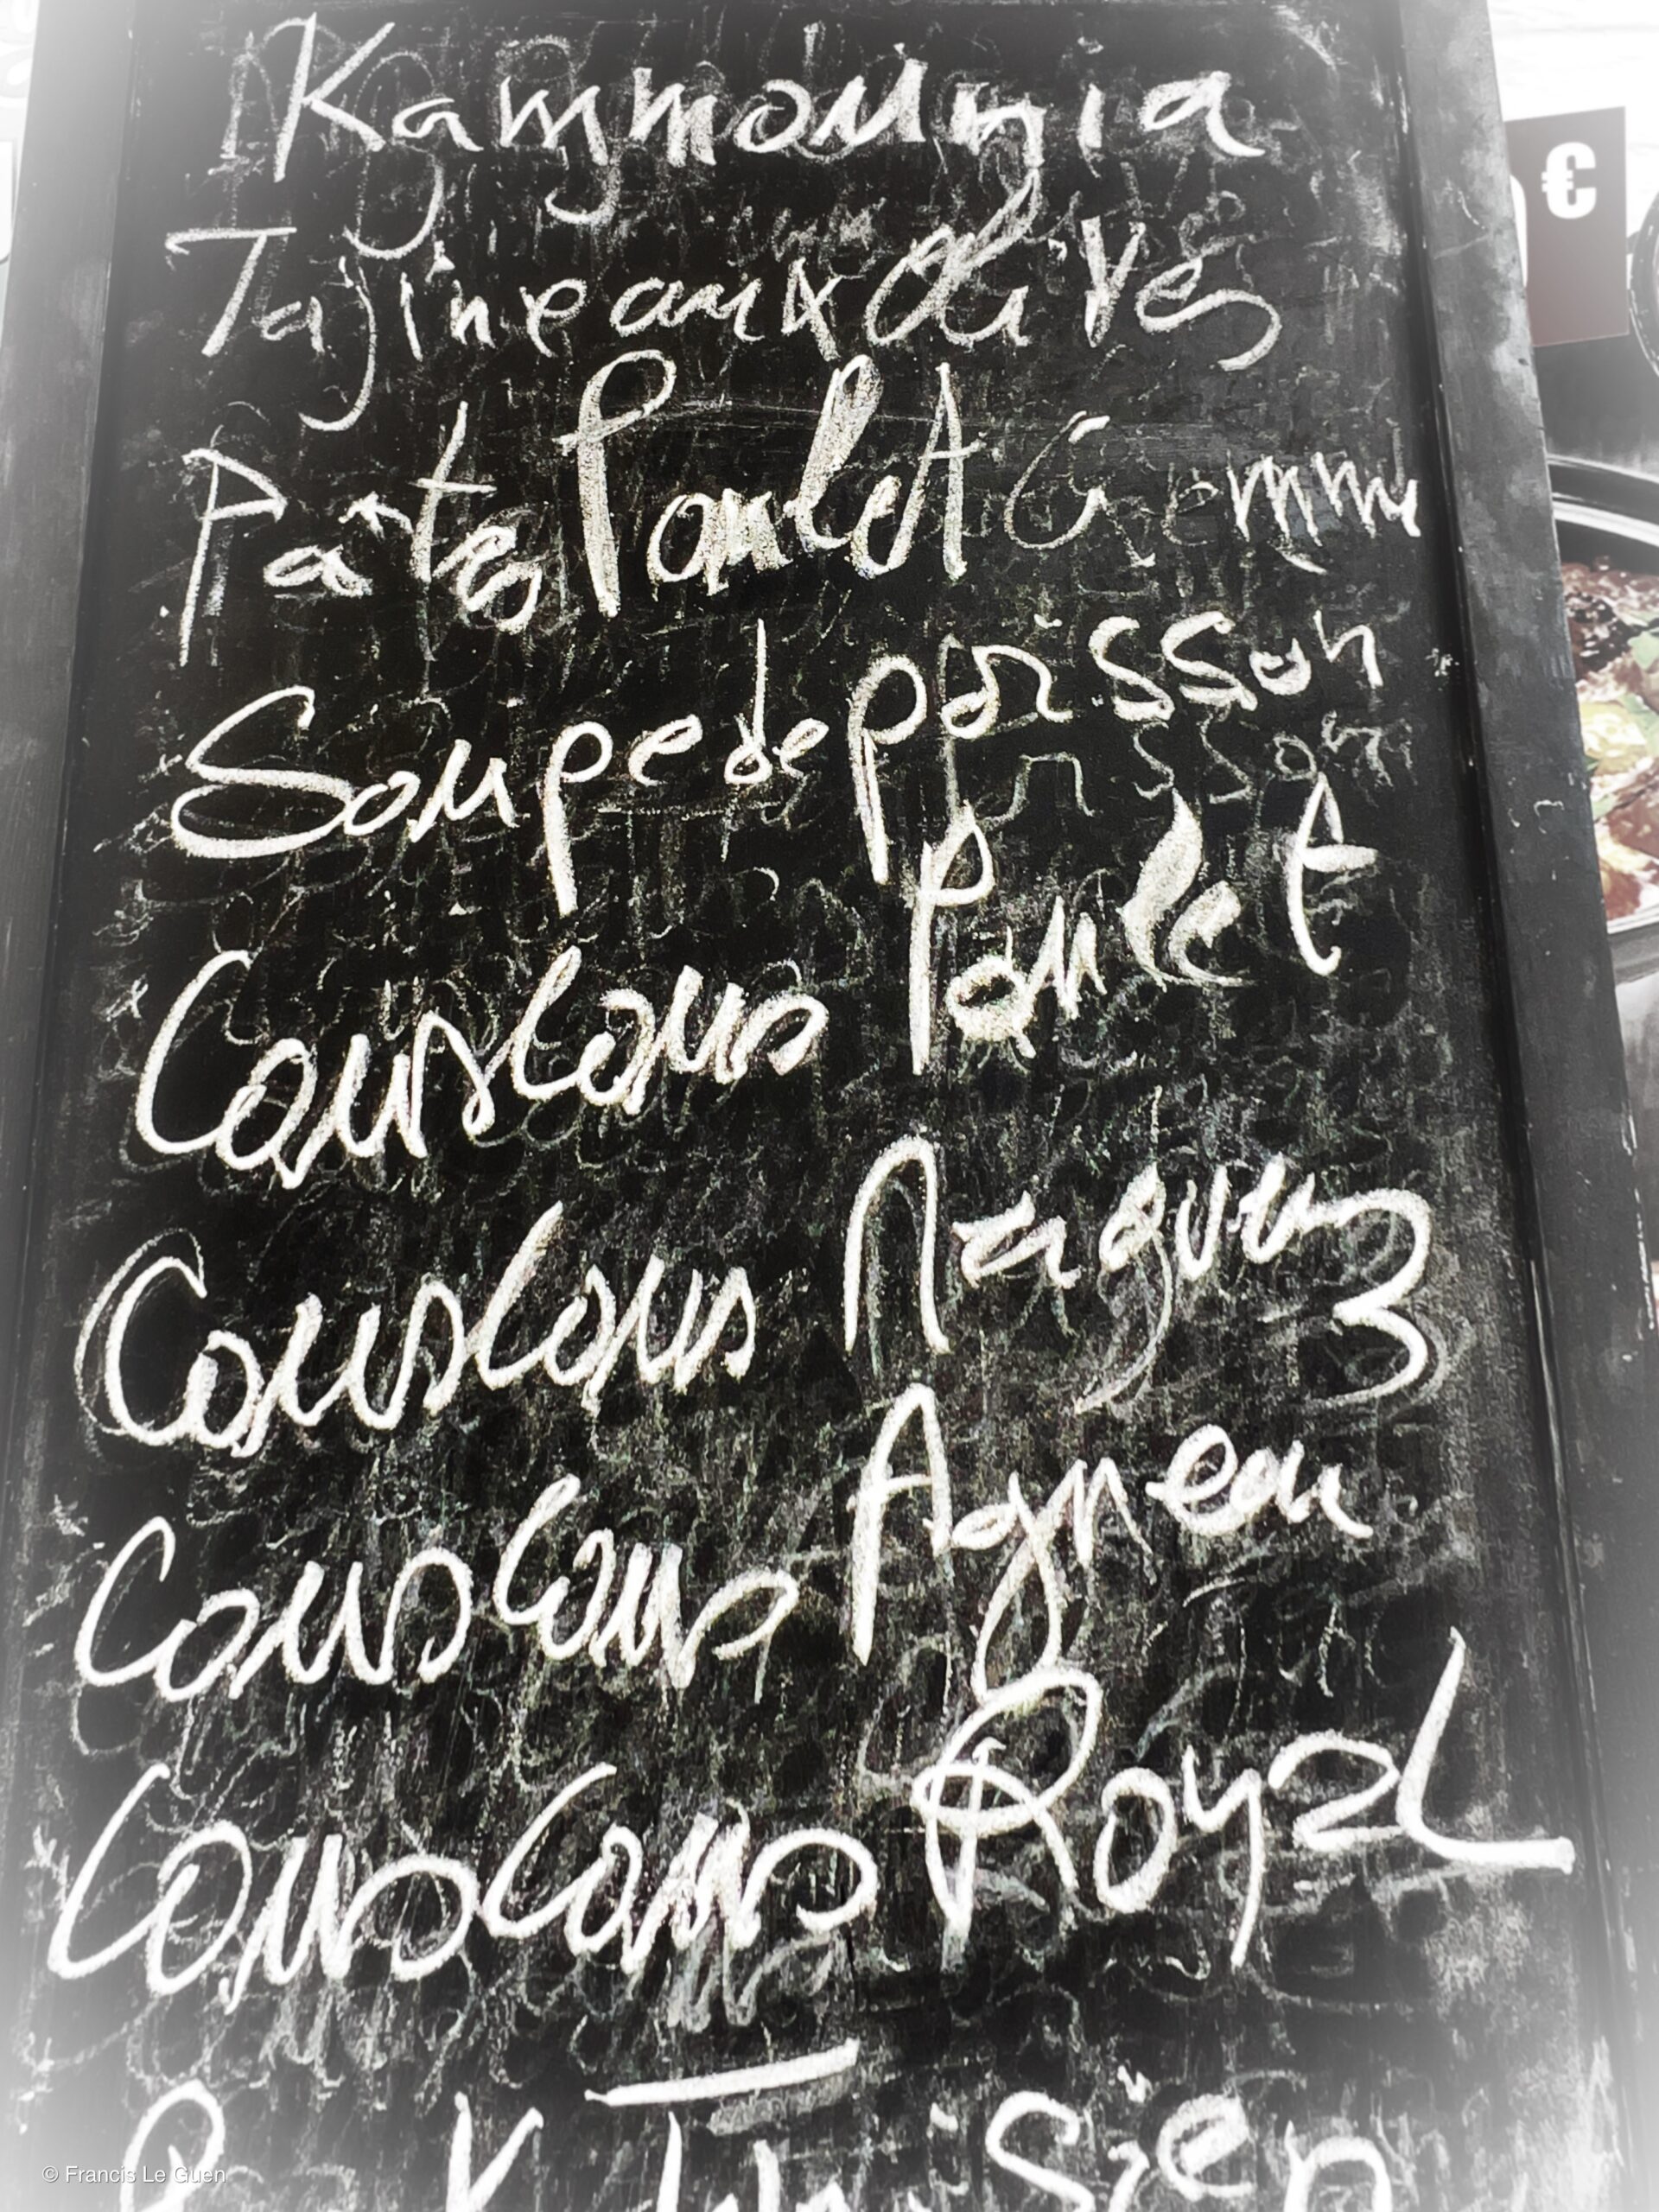 Kammounia
€
Tajine aux olives
Pates Poulet
Soupe de poisson
Couscous Poulet
Couscous Merguez
Couscous Agneau
Couscous Royal
© Francis Le Guen